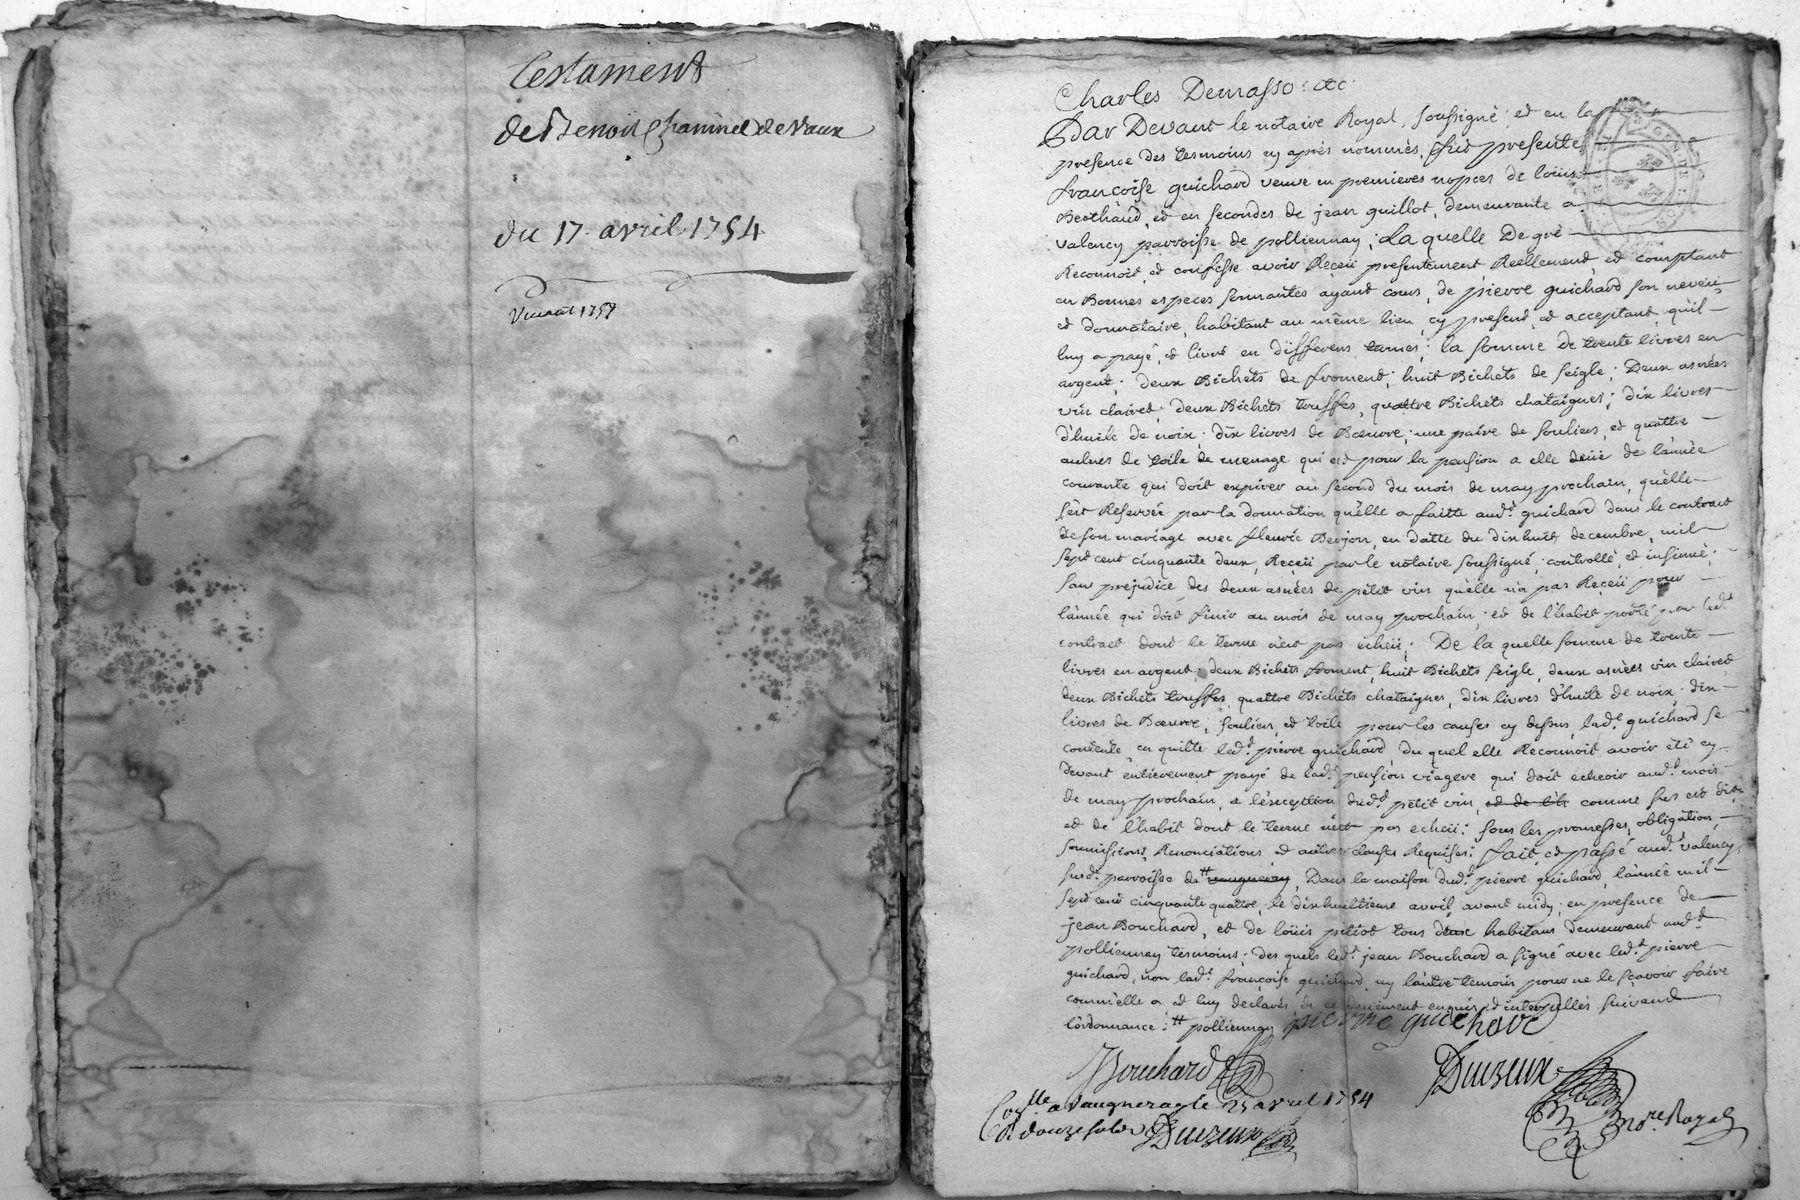 Testament
de Benoit Chaminel de Vaux
du 17 avril 1754
Charles Demasso &c
Par Devant le notaire Royal, soussigné et en la
presence des tesmoins cy après nommés, fut presente
françoise guichard veuve en premieres nopces de loüis
Berthaud, et en secondes de jean guillot, demeurante a
valency parroisse de polliennay; La quelle De gré
Reconnoit et confesse avoir Reçeü presentement Réellement et comptant
en Bonnes especes sonnantes ayant cours, de pierre guichard son neveu
et donnataire, habitant au même lieu, cy present, et acceptant, qu'il
luy a payé, et livré en differens termes; la somme de trente livres en
argent; deux Bichets de froment; huit Bichets de seigle; Deux asnées
vin clairet; deux Bichets truffes, quattre Bichets chataignes; dix livres
d'huile de noix; dix livres de Bœurre; une paire de souliers, et quattre
aulnes de toile de menage qui est pour la pension a elle deüe de l'année
courante qui doit expirer au second du mois de may prochain, qu'elle
s'est Reservée par la donnation qu'elle a faitte aud.t guichard dans le contract
de son mariage avec fleurie Berjon, en datte du dixhuit decembre, mil
sept cent cinquante deux, Reçeü par le notaire soussigné; controllé, et insinué;
sans prejudice des deux asnées de petit vin qu'elle n'a pas Reçeü pour
l'année qui doit finir au mois de may prochain; et de l'habit porté par led.t
contract dont le terme n'est pas écheü; De la quelle somme de trente
livres en argent; deux Bichets froment, huit Bichets seigle, deux asnées vin clairet
deux Bichets truffes, quattre Bichets chataignes, dix livres d'huile de noix; dix
livres de Bœurre; souliers, et toile pour les causes cy dessus, lad.e guichard se
contente en quitte led.t pierre guichard, Du quel elle Reconnoit avoir été cy
devant éntierement payé de lad.e pension viagere qui doit echeoir aud.t mois
de may prochain, a l'exception dud.t petit vin, comme sus est dit;
et de l'habit dont le terme n'est pas echeü: sous les promesses, obligation,
soumissions, Renonciations, et autres clauses Requises; fait et passé aud.t valency,
susd.e parroisse de # vaugneray, Dans la maison dud.t pierre guichard, l'année mil
sept cent cinquante quattre, le dixhuittieme avril avant midy; en presence de
jean Bouchard, et de loüis petiot tous deux habitans demeurant aud.t
polliennay tesmoins; des quels led.t jean Bouchard a signé avec led.t pierre
guichard, non lad.e françoise guichard, ny l'autre temoin pour ne le sçavoir faire
comm'elle a et luy declarés de ce duëment enquis et interpellés suivant
l'ordonnance; # polliennay pierre guichard
Bouchard
Duvzeux
Con.lle a Vaugneray le 25 avril 1754
R douze sols Duvzeux
no.re Royal